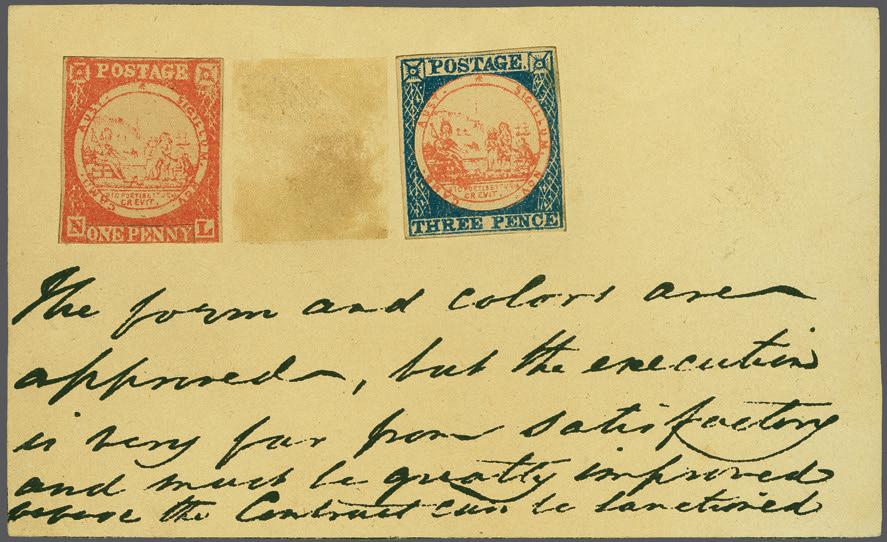 POSTAGE
AUST. SIGILLUM. NOV. CAMB.
SIC FORTIS ETRURIA
CREVIT.
N ONE PENNY L
POSTAGE.
AUST. SIGILLUM. NOV. CAMB.
SIC FORTIS ETRURIA
CREVIT.
THREE PENCE
The form and colors are
approved, but the execution
is very far from satisfactory
and must be greatly improved
before the Contract can be sanctioned